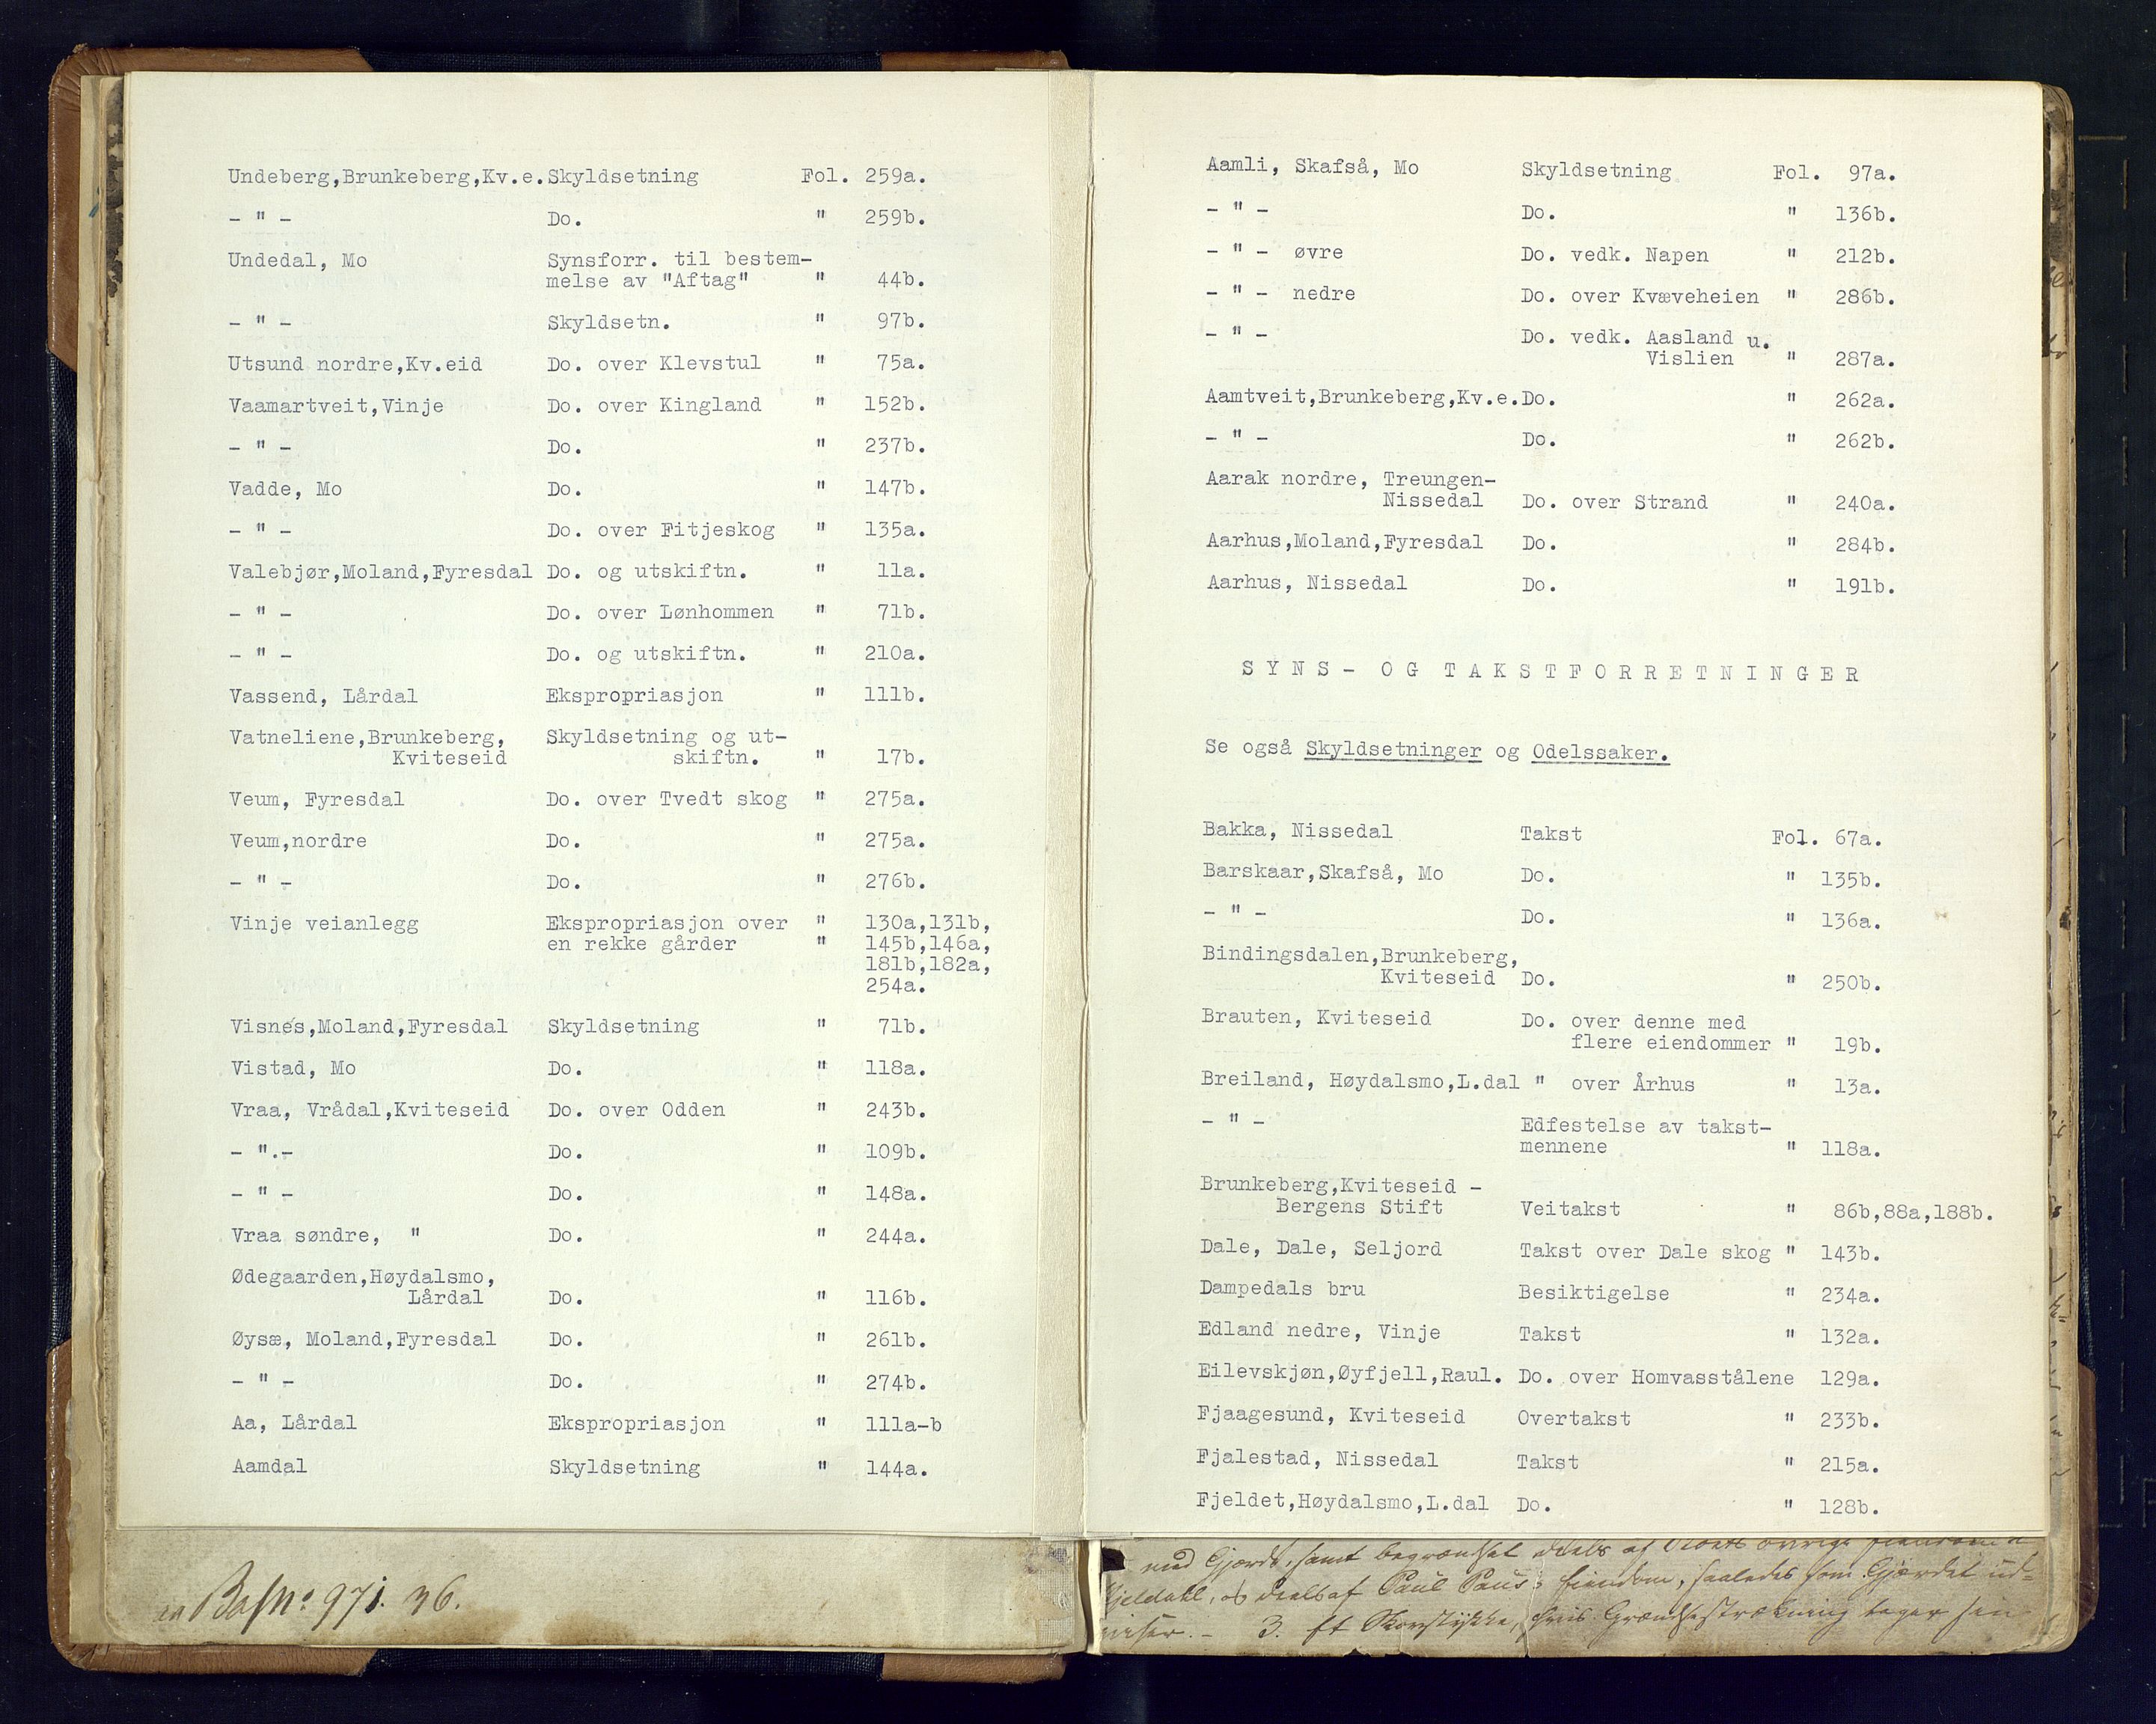 Undeberg,Brunkeberg,Kv.e. Skyldsetning Fol. 259a.
- " - Do. " 259b.
Undedal, Mo Synsforr. til bestem-
melse av "Aftag" " 44b.
- " - Skyldsetn. " 97b.
Utsund nordre,Kv.eid Do. over Klevstul " 75a.
Vaamartveit,Vinje Do. over Kingland " 152b.
- " - Do. " 237b.
Vadde, Mo Do. " 147b.
- " - Do. over Fitjeskog " 135a.
Valebjør,Moland,Fyresdal Do. og utskiftn. " 11a.
- " - Do. over Lønhommen " 71b.
- " - Do. og utskiftn. " 210a.
Vassend, Lårdal Ekspropriasjon " 111b.
Vatneliene,Brunkeberg, Skyldsetning og ut-
Kviteseid skiftn. " 17b.
Veum, Fyresdal Do. over Tvedt skog " 275a.
Veum,nordre Do. " 275a.
- " - Do. " 276b.
Vinje veianlegg Ekspropriasjon over " 130a,131b,
en rekke gårder " 145b,146a,
181b,182a,
254a.
Visnes,Moland,Fyresdal Skyldsetning " 71b.
Vistad, Mo Do. " 118a.
Vraa, Vrådal,Kviteseid Do. over Odden " 243b.
- ".- Do. " 109b.
- " - Do. " 148a.
Vraa søndre, " Do. " 244a.
Ødegaarden,Høydalsmo,
Lårdal Do. " 116b.
Øysæ, Moland,Fyresdal Do. " 261b.
- " - Do. " 274b.
Aa, Lårdal Ekspropriasjon " 111a-b
Aamdal Skyldsetning " 144a.
No 971. 36.
Aamli, Skafså, Mo Skyldsetning Fol. 97a.
- " - Do. " 136b.
- " - øvre Do. vedk. Napen " 212b.
- " - nedre Do. over Kvæveheien " 286b.
- " - Do. vedk. Aasland u.
Vislien " 287a.
Aamtveit,Brunkeberg,Kv.e. Do. " 262a.
- " - Do. " 262b.
Aarak nordre, Treungen-
Nissedal Do. over Strand " 240a.
Aarhus,Moland,Fyresdal Do. " 284b.
Aarhus, Nissedal Do. " 191b.
SYNS- OG TAKSTFORRETNINGER
Se også Skyldsetninger og Odelssaker.
Bakka, Nissedal Takst Fol. 67a.
Barskaar,Skafså, Mo Do. " 135b.
- " - Do. " 136a.
Bindingsdalen,Brunkeberg,
Kviteseid Do. " 250b.
Brauten, Kviteseid Do. over denne med
flere eiendommer " 19b.
Breiland, Høydalsmo,L.dal " over Århus " 13a.
- " - Edfestelse av takst-
mennene " 118a.
Brunkeberg,Kviteseid -
Bergens Stift Veitakst " 86b,88a,188b.
Dale, Dale, Seljord Takst over Dale skog " 143b.
Dampedals bru Besiktigelse " 234a.
Edland nedre, Vinje Takst " 132a.
Eilevskjøn,Øyfjell,Raul. Do. over Homvasstålene 129a.
Fjaagesund, Kviteseid Overtakst " 233b.
Fjalestad, Nissedal Takst " 215a.
Fjeldet,Høydalsmo,L.dal Do. " 128b.
med Gjærde, samt begrændset deels af
og deels af Paul Paus's Eiendom, saaledes som Gjærdet ud-
viser. - 3. et Skovstykke, hvis Grændsestrækning tager sin